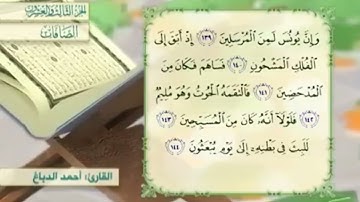 الجزء الثالث والعشرون
الصافات
وَإِنَّ يُونُسَ لَمِنَ الْمُرْسَلِينَ ﴿١٣٩﴾ إِذْ أَبَقَ إِلَى
الْفُلْكِ الْمَشْحُونِ ﴿١٤٠﴾ فَسَاهَمَ فَكَانَ مِنَ
الْمُدْحَضِينَ ﴿١٤١﴾ فَالْتَقَمَهُ الْحُوتُ وَهُوَ مُلِيمٌ
﴿١٤٢﴾ فَلَوْلَا أَنَّهُ كَانَ مِنَ الْمُسَبِّحِينَ ﴿١٤٣﴾
لَلَبِثَ فِي بَطْنِهِ إِلَى يَوْمِ يُبْعَثُونَ ﴿١٤٤﴾
القارئ: أحمد الدباغ